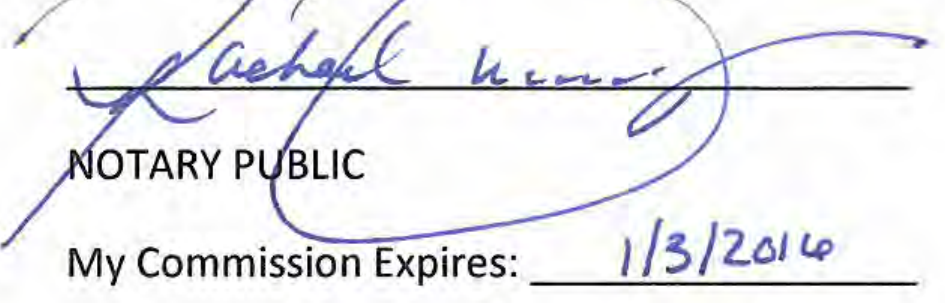 Rachael
NOTARY PUBLIC
My Commission Expires: 1/3/2016